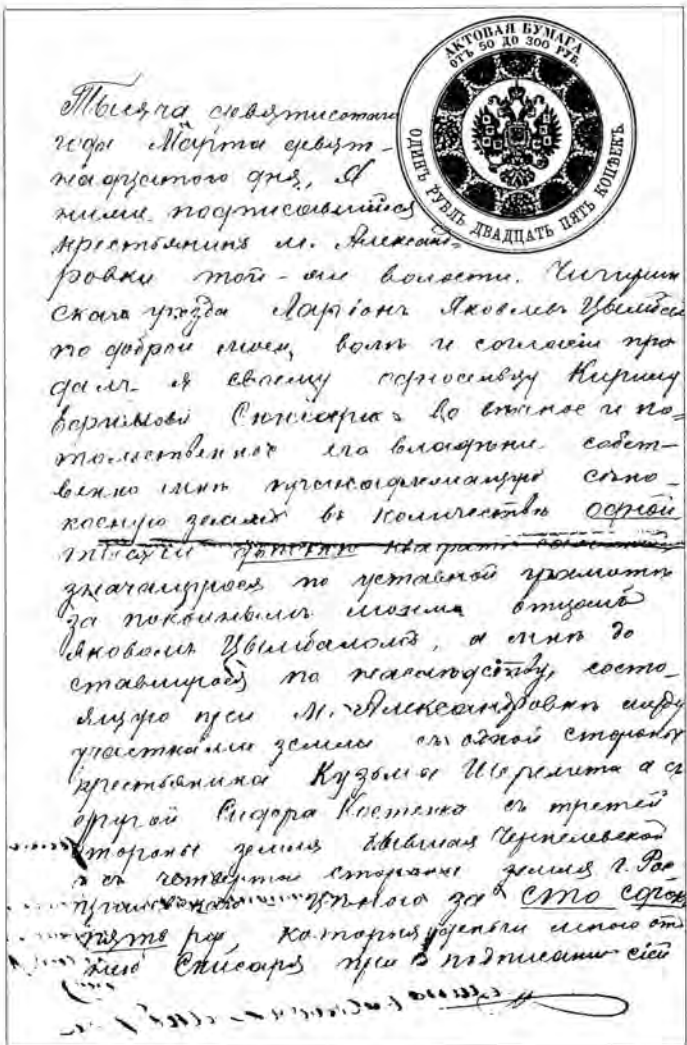 АКТОВАЯ БУМАГА
ОТЪ 50 ДО 300 РУБ.
ОДИНЪ РУБЛЬ ДВАДЦАТЬ ПЯТЬ КОПѢЕКЪ.
Тысяча девятисотаго
года Марта девят-
надцатого дня, Я
ниже подписавшийся
крестьянинъ м. Александ-
ровки той-же волости. Чигирин
скаго уѣзда Ларіонъ Яковлевъ Цымбал
по доброй моей волѣ и согласіи про
далъ я своему односельцу Кирилу
Слюсарю во вѣчное и по-
томственное его владѣніе собст-
венно мнѣ принадлежащую сѣно-
косную землю въ количествѣ одной
значащуюся по уставной грамотѣ
за покойнымъ моимъ отцомъ
Яковомъ Цымбаломъ, а мнѣ до
ставшуюся по наслѣдству, состо-
ящую при М. Александровкѣ между
участками земли съ одной стороны
крестьянина Кузьмы Шеремета а съ
другой Сидора Костенко съ третей
стороны земля бывшая
и съ четвертой стороны земля г.
за сто сорок
пять руб, которыя деньги
Слюсаря при подписаніи сей